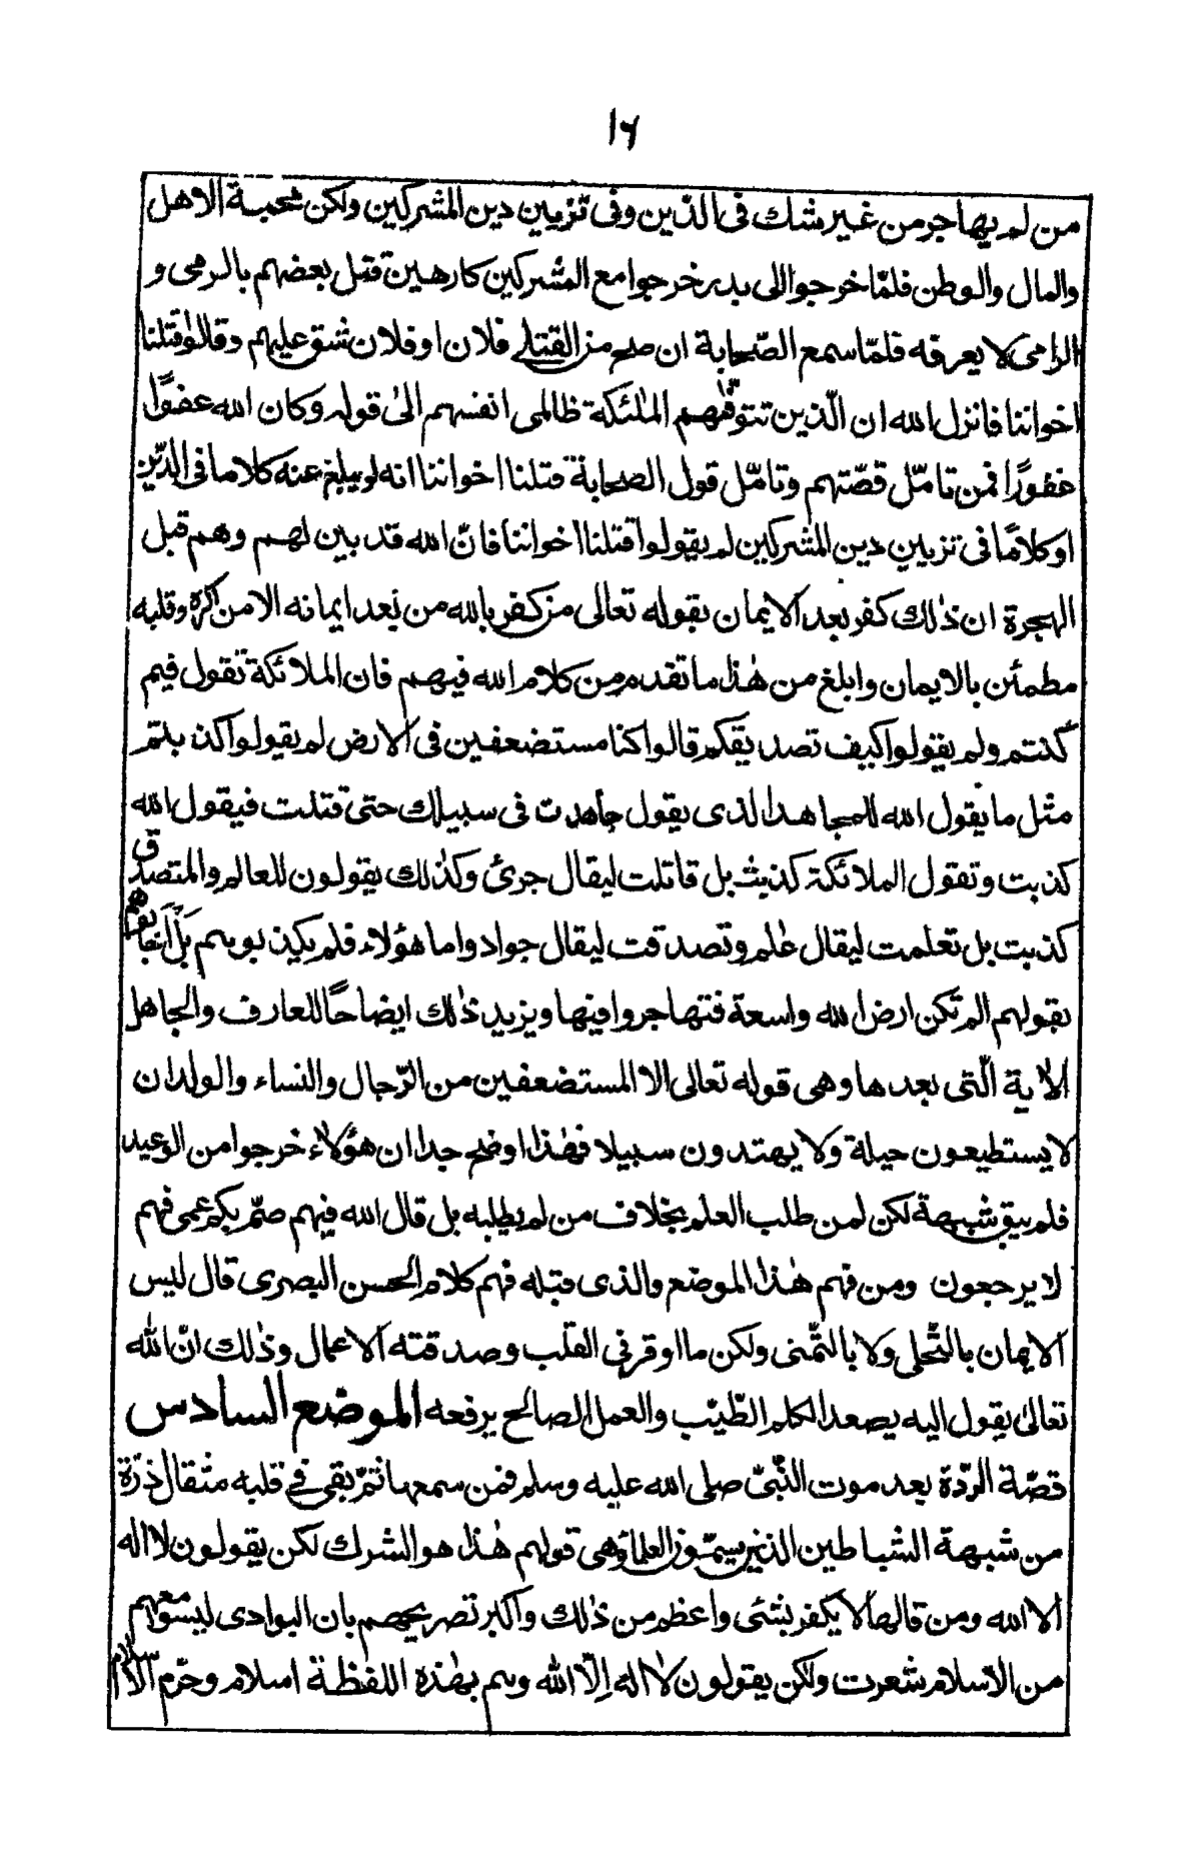 ١٦
من لم يهاجر من غير شك فى الدّين وفى تزيين دين المشركين ولكن محبة الاهل
والمال والوطن فلمّا خرجوا الى بدر خرجوا مع المشركين كارهين فقتل بعضهم بالرمى و
الرامى لا يعرفه فلمّا سمع الصّحابة ان من القتلى فلان او فلان شق عليهم وقالوا قتلنا
اخواننا فانزل الله ان الّذين تتوفّهم الملئكة ظالمى انفسهم الى قوله وكان الله عفوًّا
غفورًا فمن تامّل قصّتهم وتامّل قول الصحابة قتلنا اخواننا انه لو بلغ عنه كلاما فى الدّين
او كلامًا فى تزيين دين المشركين لم يقولوا قتلنا اخواننا فانّ الله قد بين لهم وهم قبل
الهجرة ان ذٰلك كفر بعد الايمان بقوله تعالى من كفر بالله من بعد ايمانه الا من اكره وقلبه
مطمئن بالايمان وابلغ من هٰذا ما تقدم من كلام الله فيهم فان الملائكة تقول فيم
كنتم ولم يقولوا كيف تصديقكم قالوا كنا مستضعفين فى الارض لم يقولوا كذبتم
مثل ما يقول الله للمجاهد الذى يقول جاهدت فى سبيلك حتى قتلت فيقول الله
كذبت وتقول الملائكة كذبت بل قاتلت ليقال جرئ وكذٰلك يقولون للعالم والمتصدق
كذبت بل تعلمت ليقال عٰلم وتصدقت ليقال جواد واما هؤلاء فلم يكذبوهم بل اجابوهم
بقولهم الم تكن ارض الله واسعة فتهاجروا فيها ويزيد ذٰلك ايضاحًا للعارف والجاهل
الاية الّتى بعدها وهى قوله تعالى الا المستضعفين من الرّجال والنساء والولدان
لا يستطيعون حيلة ولا يهتدون سبيلا فهٰذا اوضح جدا ان هؤلاء خرجوا من الوعيد
فلم يبق شبهة لكن لمن طلب العلم بخلاف من لم يطلبه بل قال الله فيهم صمّ بكم عمى فهم
لا يرجعون ومن فهم هٰذا الموضع والذى قبله فهم كلام الحسن البصرى قال ليس
الايمان بالتّحلى ولا بالتّمنى ولكن ما اوقر فى القلب وصدقته الاعمال وذٰلك انّ الله
تعالى يقول اليه يصعد الكلم الطّيّب والعمل الصالح يرفعه الموضع السادس
قصّة الردّة بعد موت النّبىّ صلى الله عليه وسلم فمن سمعها ثم بقى فى قلبه مثقال ذرّة
من شبهة الشياطين الذين يسمّون العلماء وهى قولهم هٰذا هو الشرك لكن يقولون لا اله
الا الله ومن قالها لا يكفر بشئى واعظم من ذٰلك واكبر تصريحهم بان البوادى ليس معهم
من الاسلام شعرت ولكن يقولون لا اله الّا الله وهم بهٰذه اللفظة اسلام وحرّم الاسلام